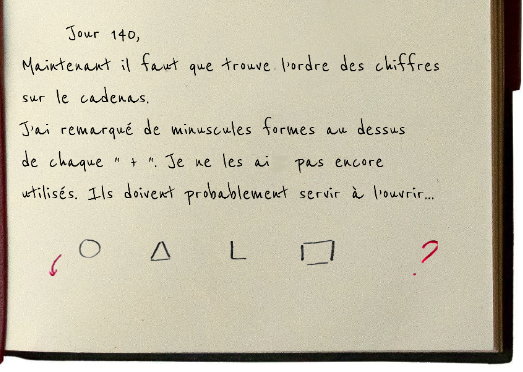 Jour 140,
Maintenant il faut que trouve l'ordre des chiffres
sur le cadenas.
J'ai remarqué de minuscules formes au dessus
de chaque " + ". Je ne les ai pas encore
utilisés. Ils doivent probablement servir à l'ouvrir...
?